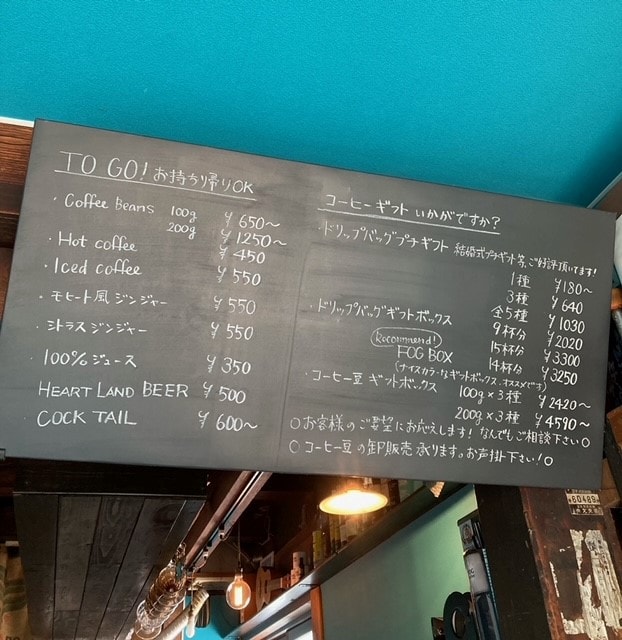 TO GO! お持ち帰りOK
・Coffee Beans 100g ¥650〜
200g ¥1250〜
・Hot coffee ¥450
・Iced coffee ¥550
・モヒート風ジンジャー ¥550
・シトラスジンジャー ¥550
・100%ジュース ¥350
HEART LAND BEER ¥500
COCK TAIL ¥600〜
コーヒーギフト いかがですか?
・ドリップバッグプチギフト 結婚式プチギフト等、ご好評頂いてます!
1種 ¥180〜
3種 ¥640
全5種 ¥1030
・ドリップバッグギフトボックス 9杯分 ¥2020
15杯分 ¥3300
Recommend! FOG BOX 14杯分 ¥3250
(ナイスカラーなギフトボックス、オススメです)
・コーヒー豆 ギフトボックス 100g×3種 ¥2420〜
200g×3種 ¥4590〜
○お客様のご要望にお応えします! なんでもご相談下さい○
○コーヒー豆の卸販売 承ります。お声掛下さい!○
60489